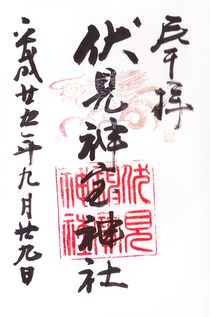 奉拝
伏見神宝神社
伏見
神寳
神社
平成廿五年九月廿九日